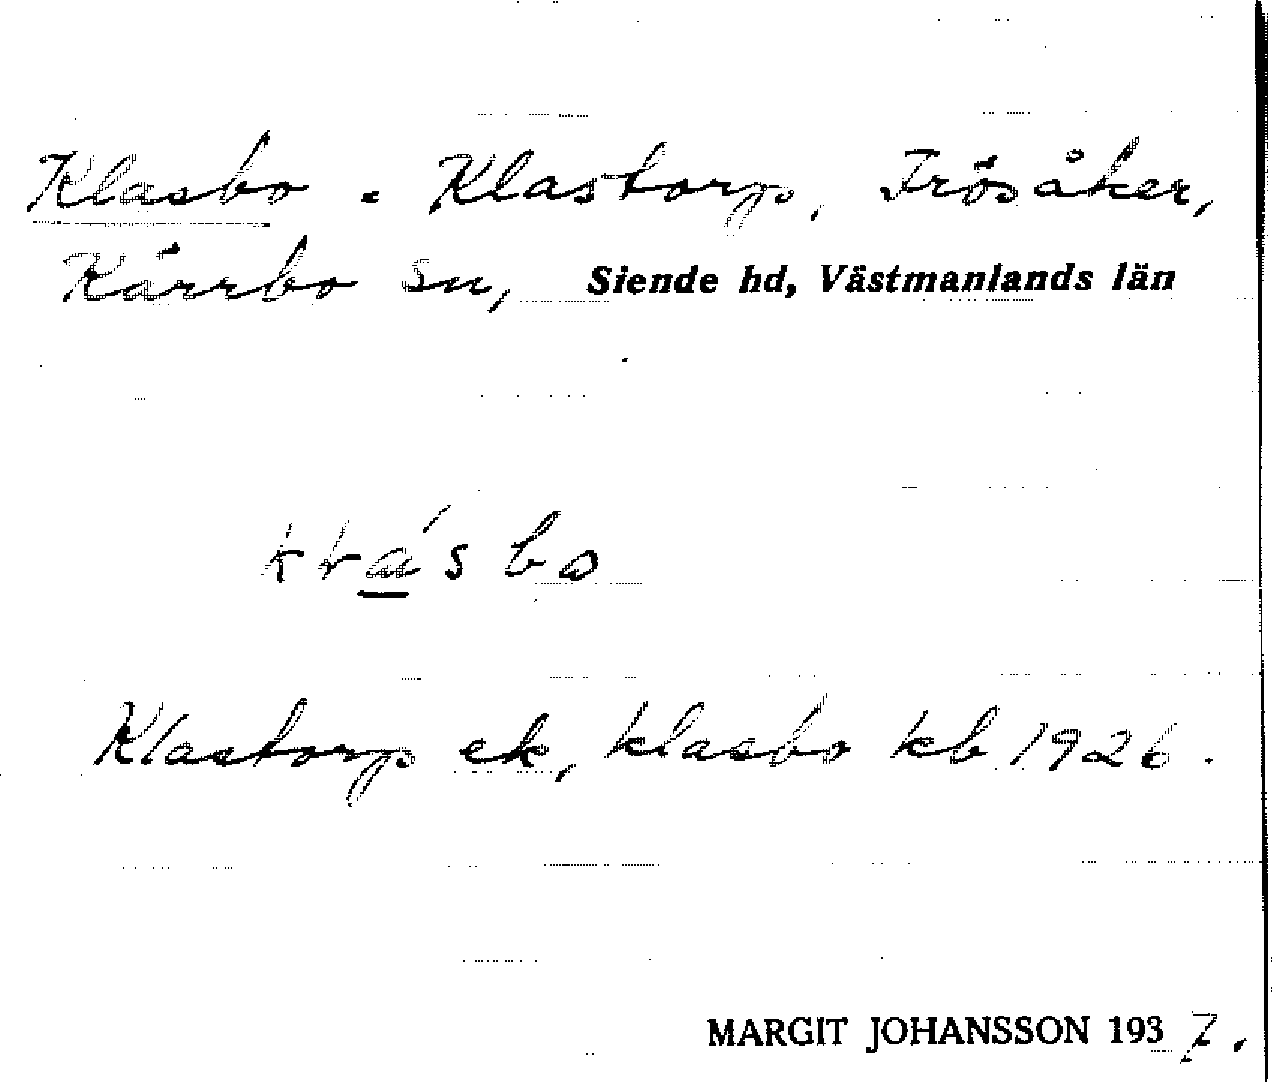 Klasbo = Klastorp, Frösåker,
Kärrbo sn, Siende hd, Västmanlands län
Klastorp ek, Klasbo kb 1926.
MARGIT JOHANSSON 1937.